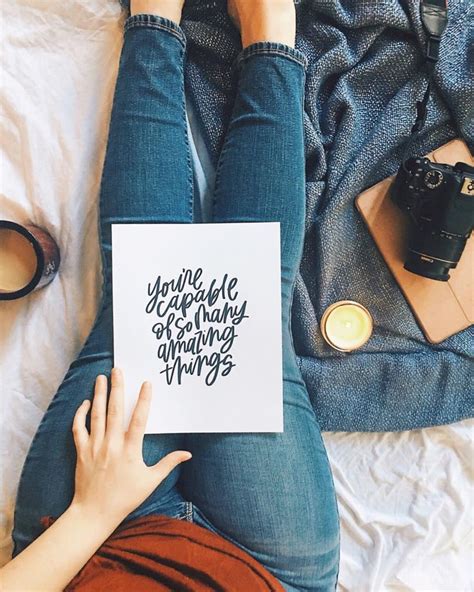 you're
capable
of so many
amazing
things
Canon